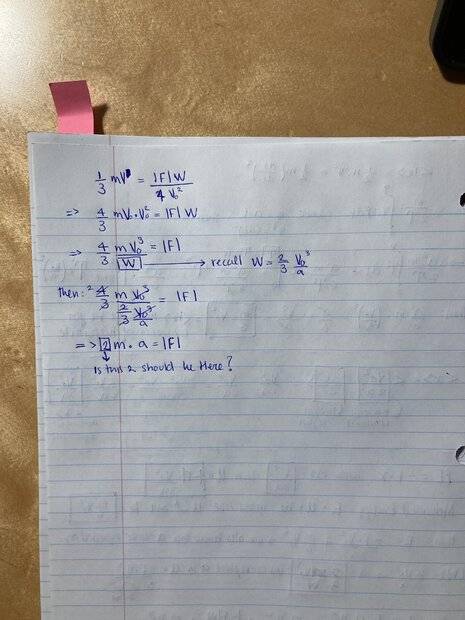 1/3 mV = |F|W / 4V₀²
=> 4/3 mV₀·V₀² = |F|W
=> 4/3 mV₀³/W = |F| → recall W = 2/3 V₀³/a
then: 2 4/3 m V₀³ / (2/3 V₀³/a) = |F|
=> 2 m · a = |F|
Is this 2 should be Here?